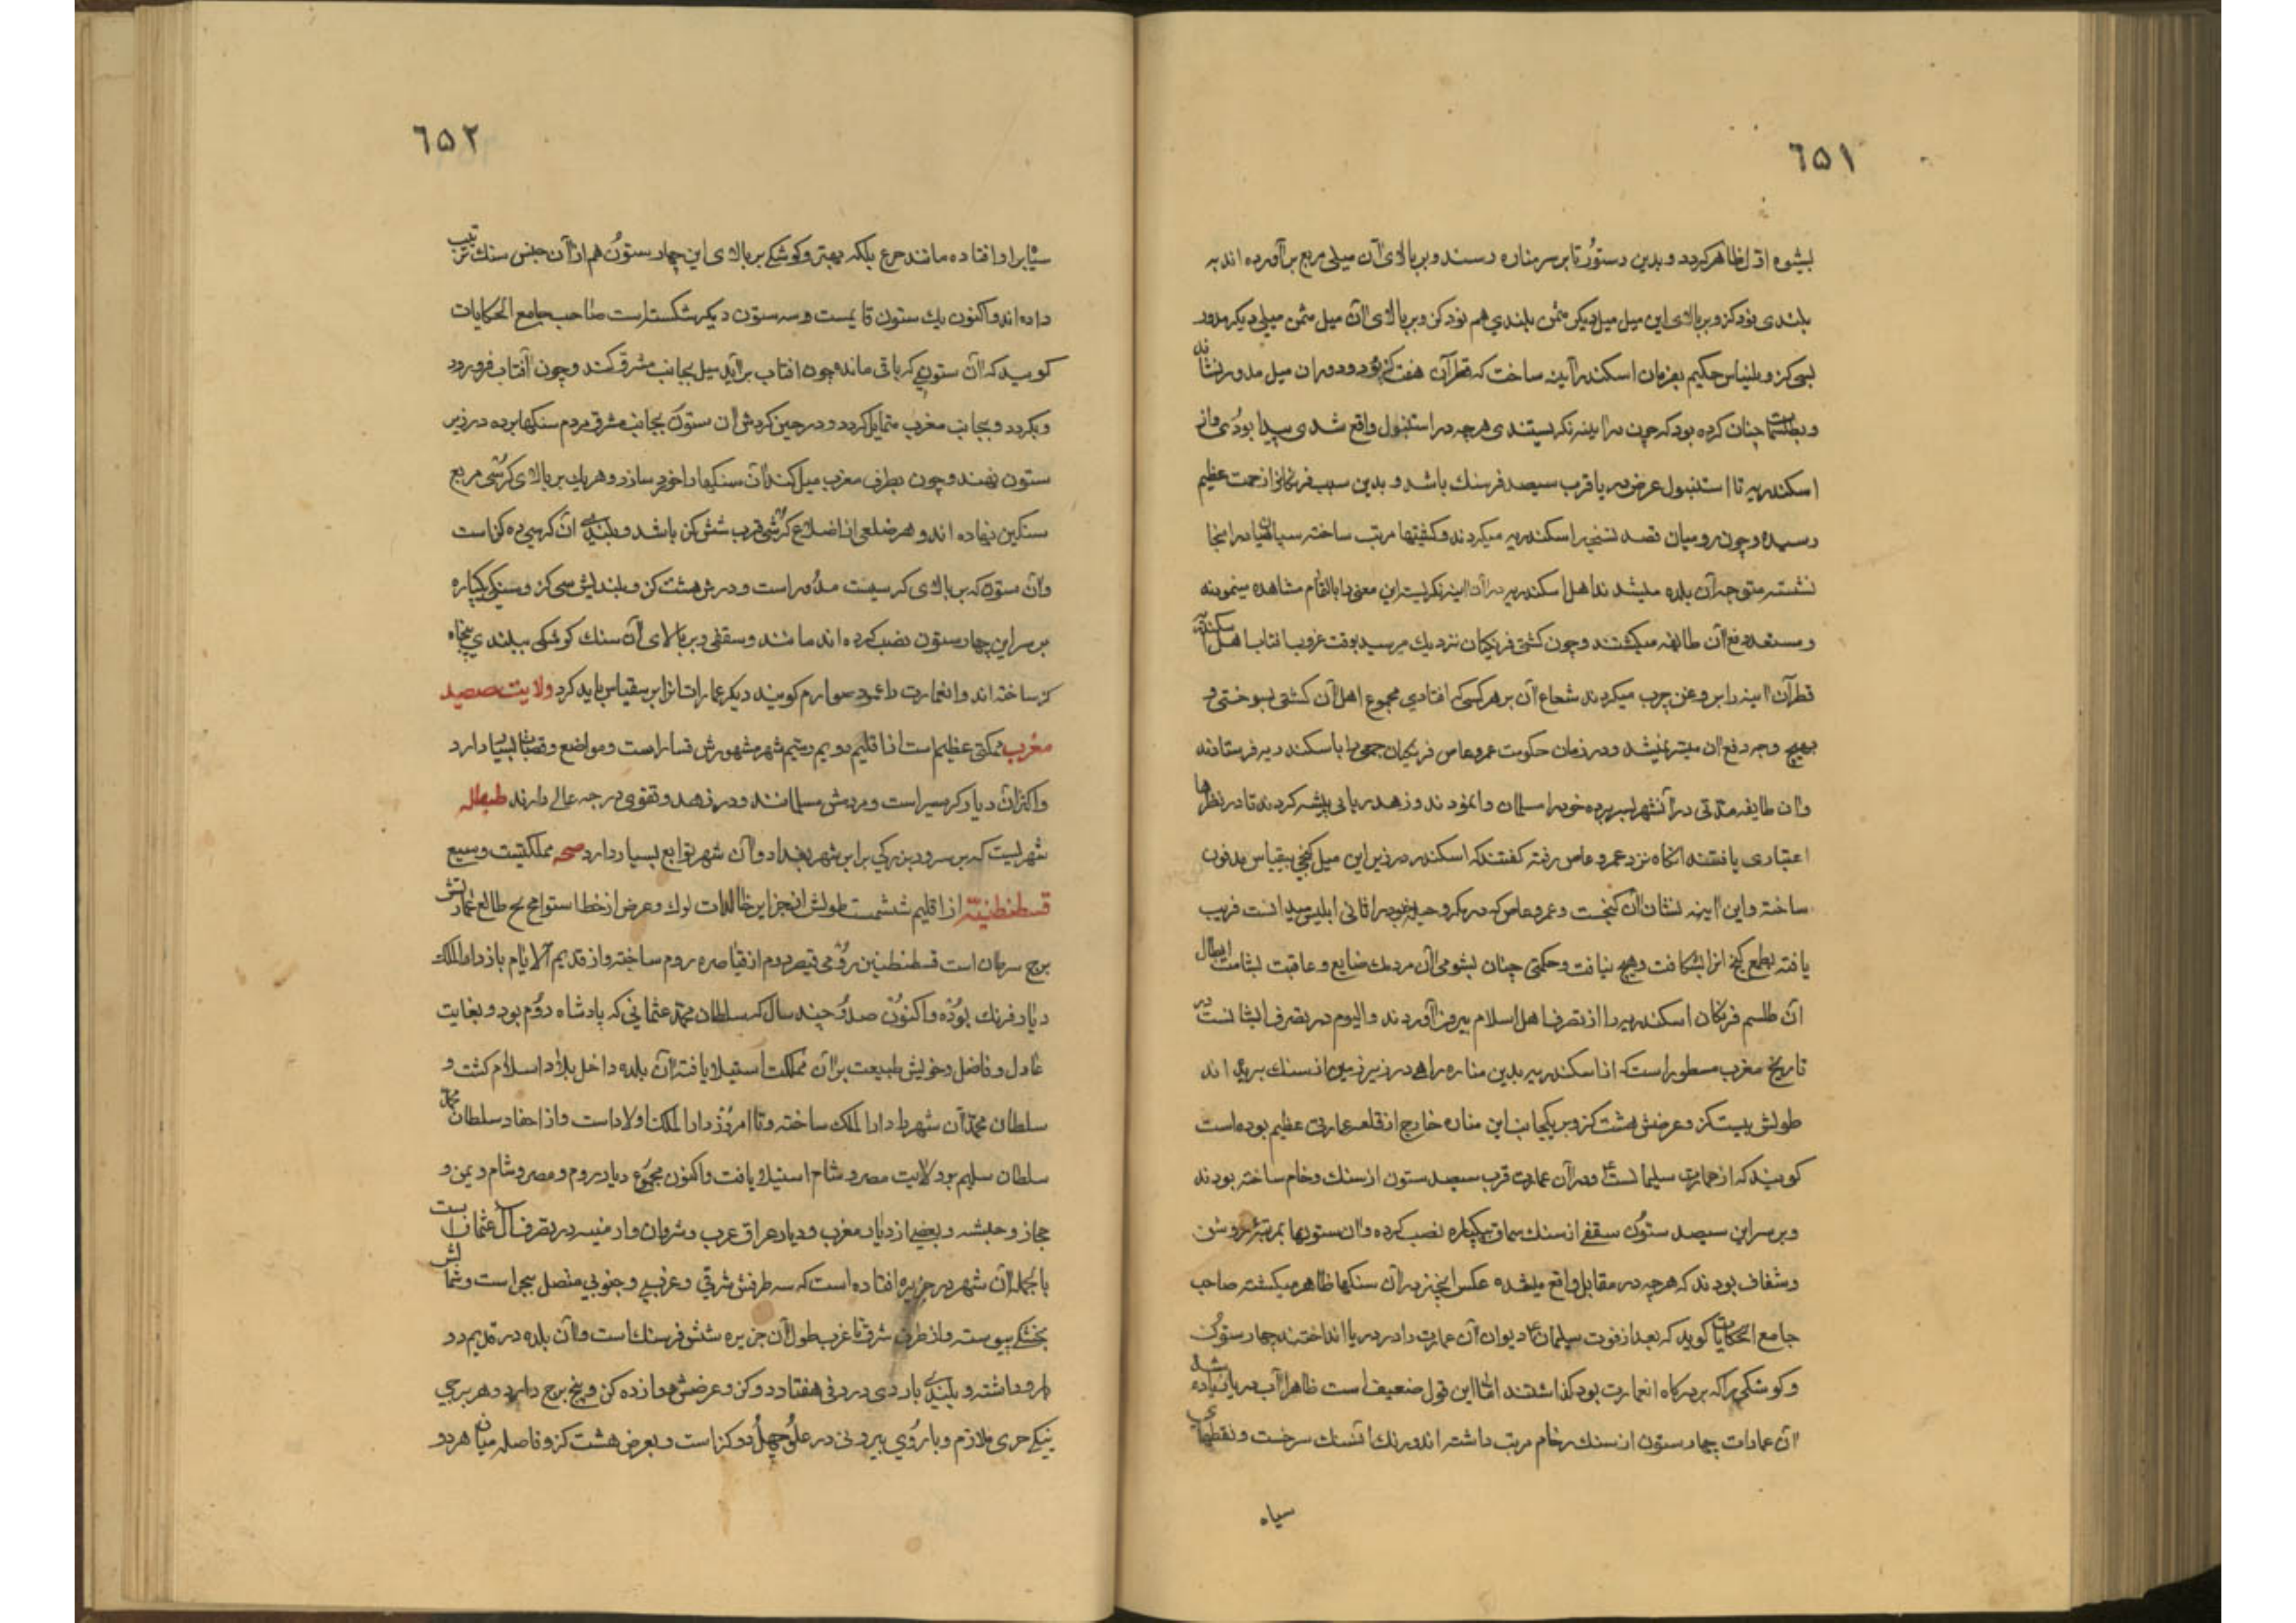 ٦٥١
بشیوه اول ظاهر کردد و بدین دستور تا بر سر مناره رسند و بر بالای آن میلی مربع برآورده اند به
بلندی نود کز و بر بالای این میل میل دیکر مثمن بلندی هم نود کز و بر بالای آن میل مثمن میلی دیکر مدور
سی کز و بلیناس حکیم بفرمان اسکندر آینه ساخت که قطر آن هفت کز بود و دوران میل مدور
چنان کرده بود که چون در آینه نکریستندی هرچه در استنبول واقع شدی پیدا بودی و از
اسکندریه تا استنبول عرض دریا قرب سیصد فرسنک باشد و بدین سبب فرنکانرا زحمت عظیم
رسیده و چون رومیان قصد تسخیر اسکندریه میکردند و کشتیها مرتب ساخته سپاهیان در انجا
نشسته متوجه آن بلده میشدند اهل اسکندریه در آن آینه نکریسته این معنی را بالتمام مشاهده مینمودند
و مستعد دفع آن طایفه میکشتند و چون کشتی فرنکیان نزدیک میرسید بوقت غروب افتاب اهل اسکندریه
قطر آن آینه را بروغن چرب میکردند شعاع آن بر هر کسی که افتادی مجموع اهل آن کشتی بسوختی و
بهیچ وجه دفع آن میسر نمیشد و در زمان حکومت عمرو عاص فرنکیان جمعی را باسکندریه فرستادند
و آن طایفه مدتی در آنشهر بسر برده خود را مسلمان وانمودند و زهد ربانی پیشه کردند تا در نظرها
اعتباری یافتند انکاه نزد عمرو عاص رفته کفتند که اسکندر در زیر این میل کنجی بیقیاس مدفون
ساخته و این آینه نشان آن کنجست و عمرو عاص که در مکر و حیله خود را ثانی ابلیس میدانست فریب
یافته بطمع کنج انرا بشکافت و هیچ نیافت و حکمتی چنان بشومی آن مردک ضایع و عاقبت بشامت ابطال
آن طلسم فرنکان اسکندریه را از تصرف اهل اسلام بیرون آوردند و الیوم در تصرف ایشانست در
تاریخ مغرب مسطور است که از اسکندریه بدین مناره راهی در زیر زمین از سنک بریده اند
طولش بیست کز و عرضش هشت کز و بر یکجانب این مناره خارج از قلعه عمارتی عظیم بوده است
کویند که از عمارت سلیمانست ع و در آن عمارت قرب سیصد ستون از سنک رخام ساخته بودند
و بر سر این سیصد ستون سقفی از سنک سماق یکپاره نصب کرده و آن ستونها بمرتبۀ روشن
و شفاف بودند که هرچه در مقابل واقع میشده عکس انچیز در آن سنکها ظاهر میکشته صاحب
جامع الحکایات کوید که بعد از فوت سلیمان ع دیوان آن عمارت را در دریا انداختند چهار ستون
و کوشکی را که بر درکاه انعمارت بود کذاشتند اما این قول ضعیف است ظاهرا آب دریا زیاده شده
آن عمارات چهار ستون از سنک رخام مرتب داشته اند و رنک آنسنک سرخست و نقطهای
سیاه
٦٥٢
افتاده مانند جزع بلکه بهتر و کوشکی بر بالای این چهار ستون هم از آن جنس سنک ترتیب
داده اند و اکنون یک ستون قایمست و سه ستون دیکر شکسته است صاحب جامع الحکایات
کوید که آن ستونی که باقی مانده چون افتاب برآید میل بجانب مشرق کند و چون آفتاب فرو رود
و بکردد و بجانب مغرب متمایل کردد و در حین کردش آن ستون بجانب مشرق مردم سنکها برده در زیر
ستون نهند و چون بطرف مغرب میل کند آن سنکها را خورد سازد و هر یک بر بالای کرسی مربع
سنکین نهاده اند و هر ضلعی از اضلاع کرسی قرب شش کز باشد و بلندی آن کرسی ده کز است
و آن ستون که بر بالای کرسیست مدور است و دورش هشت کز و بلندیش سی کز و سنکی یکپاره
بر سر این چهار ستون نصب کرده اند مانند سقفی و بر بالای آن سنک کوشکی ببلندی پنجاه
کز ساخته اند و انعمارت را عمود سواری کویند دیکر عمارات انرا برینقیاس باید کرد ولایت صعید
مغرب مملکتی عظیم است از اقلیم دویم و سیم شهر مشهورش و مواضع و قصبات بسیار دارد
و اکثر آن دیار کرمسیر است و مردمش مسلمانند و در زهد و تقوی درجه عالی دارند
شهریست که بر سر رود بزرکی برابر شهر بغداد و آن شهر توابع بسیار دارد مملکتیست وسیع
قسطنطنیه از اقلیم ششمست طولش از جزایر خالدات لوک و عرض از خط استوا مح لح طالع عمارتش
برج سرطان است قسطنطنین رومی قیصر دوم از قیاصره روم ساخته و از قدیم الایام باز دارالملک
دیار فرنک بوده و اکنون صد و چند سال که سلطان محمد عثمانی که پادشاه روم بود و بغایت
عادل و فاضل و خویش طبیعت بر آن مملکت استیلا یافته آن بلده داخل بلاد اسلام کشت و
سلطان محمد آن شهر را دارالملک ساخته و تا امروز دارالملک اولاد است و از احفاد سلطان محمد
سلطان سلیم بود ولایت مصر و شام استیلا یافت و اکنون مجموع دیار روم و مصر و شام و یمن و
حجاز و حبشه و بعضی از دیار مغرب و دیار عراق عرب و شروان و ارمنیه در تصرف آل عثمان است
بالجمله آن شهر در جزیره افتاده است که سه طرفش شرقی و غربی و جنوبی متصل ببحر است و شمالش
بخشکی پیوسته و از طرف شرق تا غرب طول آن جزیره شش فرسنک است و آن بلده در قدیم دو
بارو داشته و بلندی باروی درونی هفتاد و دو کز و عرضش دوازده کز و پنج برج دارد و هر برجی
ملازم و باروی بیرونی در علو چهل دو کز است و بعرض هشت کز و فاصله میان هردو